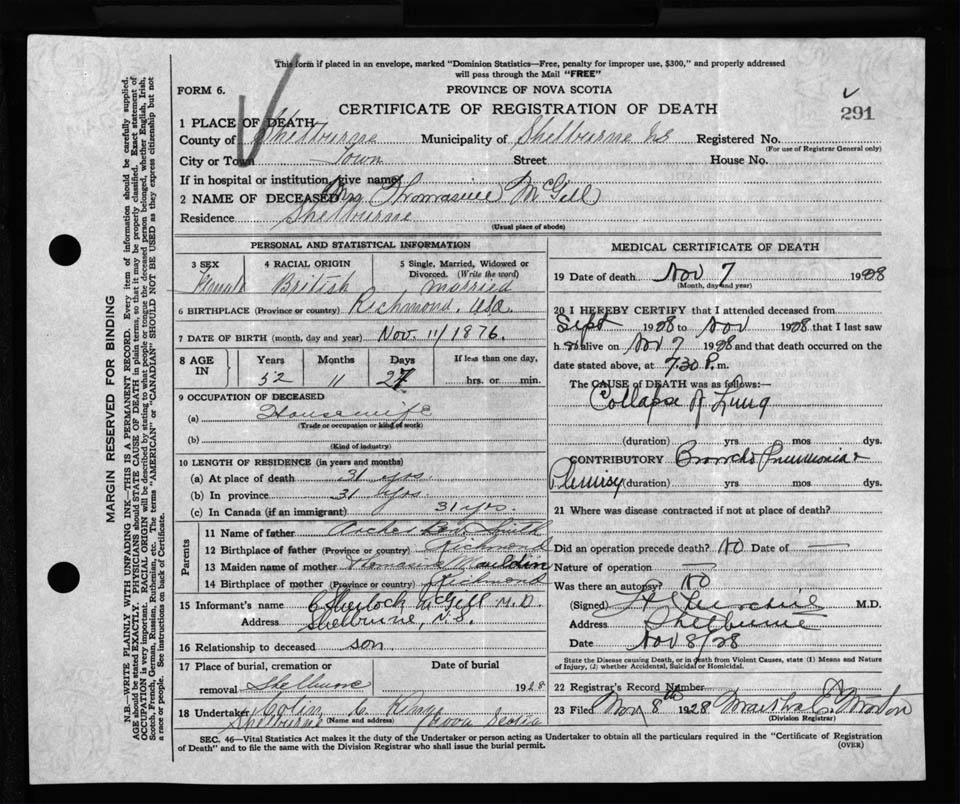 This form if placed in an envelope, marked "Dominion Statistics—Free, penalty for improper use, $300," and properly addressed
will pass through the Mail "FREE"
FORM 6.
PROVINCE OF NOVA SCOTIA
CERTIFICATE OF REGISTRATION OF DEATH
291
1 PLACE OF DEATH
County of Shelburne Municipality of Shelburne Registered No.
(For use of Registrar General only)
City or Town Town Street House No.
If in hospital or institution, give name
2 NAME OF DECEASED Mrs Thomasine McGill
Residence Shelburne
(Usual place of abode)
PERSONAL AND STATISTICAL INFORMATION
3 SEX 4 RACIAL ORIGIN 5 Single, Married, Widowed or
Divorced. (Write the word)
Female British Married
6 BIRTHPLACE (Province or country) Richmond, USA.
7 DATE OF BIRTH (month, day and year) Nov. 11/1876.
8 AGE IN Years Months Days If less than one day,
52 11 27 hrs. or min.
9 OCCUPATION OF DECEASED
(a) Housewife
(Trade or occupation or kind of work)
(b)
(Kind of industry)
10 LENGTH OF RESIDENCE (in years and months)
(a) At place of death 31 yrs
(b) In province 31 yrs.
(c) In Canada (if an immigrant) 31 yrs.
Parents
11 Name of father Smith
12 Birthplace of father (Province or country) Richmond
13 Maiden name of mother Thomasine Mauldin
14 Birthplace of mother (Province or country) Richmond
15 Informant's name C Sherlock McGill M.D.
Address Shelburne, N.S.
16 Relationship to deceased son.
17 Place of burial, cremation or Date of burial
removal Shelburne 1928
18 Undertaker Colin C.
Shelburne (Name and address) Nova Scotia
MEDICAL CERTIFICATE OF DEATH
19 Date of death Nov 7 1928
(Month, day and year)
20 I HEREBY CERTIFY that I attended deceased from
Sept 1928 to Nov 1928 that I last saw
h er alive on Nov 7 1928 and that death occurred on the
date stated above, at 7.30 P.m.
The CAUSE of DEATH was as follows:
Collapse of Lung
(duration) yrs mos dys.
CONTRIBUTORY Broncho Pneumonia +
Pleurisy (duration) yrs mos dys.
21 Where was disease contracted if not at place of death?
Did an operation precede death? No Date of —
Nature of operation —
Was there an autopsy? No
(Signed) M.D.
Address Shelburne
Date Nov 8/28
State the Disease causing Death, or in death from Violent Causes, state (1) Means and Nature
of Injury, (2) whether Accidental, Suicidal or Homicidal.
22 Registrar's Record Number
23 Filed Nov 8th 1928 Morton
(Division Registrar)
SEC. 46—Vital Statistics Act makes it the duty of the Undertaker or person acting as Undertaker to obtain all the particulars required in the "Certificate of Registration
of Death" and to file the same with the Division Registrar who shall issue the burial permit.
(OVER)
MARGIN RESERVED FOR BINDING
N.B.—WRITE PLAINLY WITH UNFADING INK—THIS IS A PERMANENT RECORD. Every item of information should be carefully supplied.
AGE should be stated EXACTLY. PHYSICIANS should STATE CAUSE OF DEATH in plain terms, so that it may be properly classified. Exact statement of
OCCUPATION is very important. RACIAL ORIGIN will be described by stating to what people or tongue the deceased person belonged, whether English, Irish,
Scotch, French, German, Russian, Ruthenian, etc. The terms "AMERICAN" or "CANADIAN" SHOULD NOT BE USED as they express citizenship but not
a race or people. See instructions on back of Certificate.